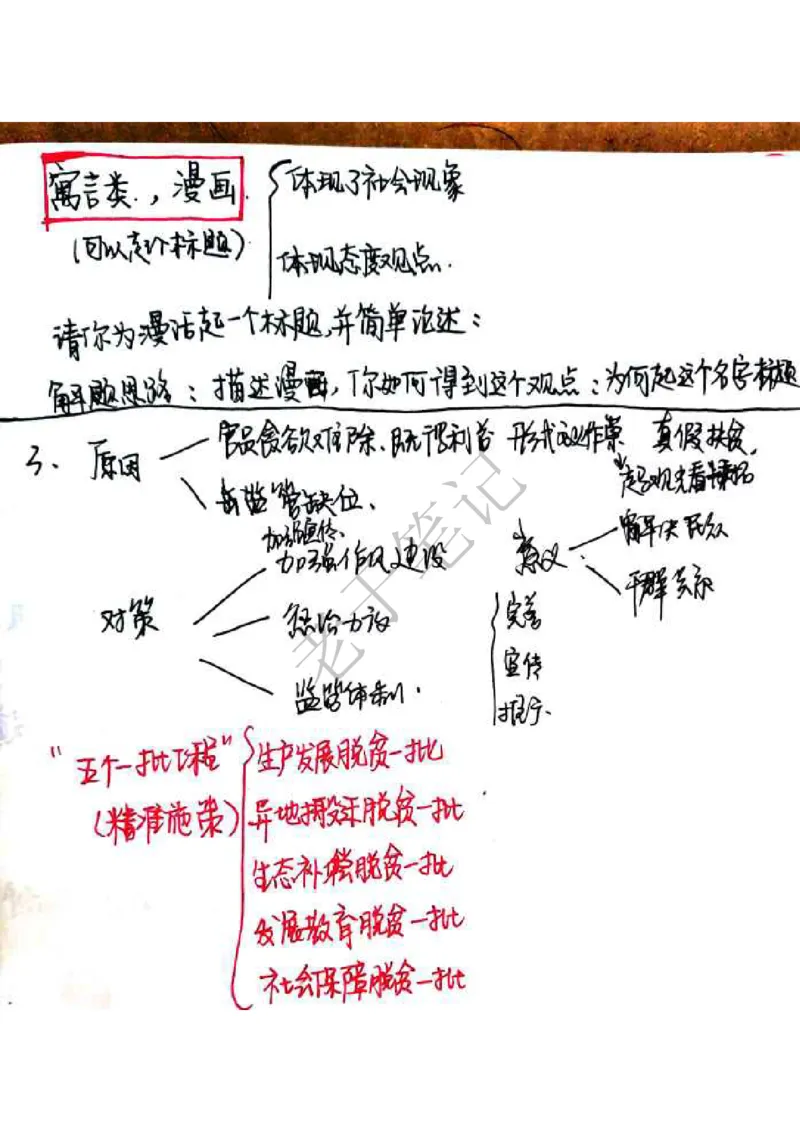 寓言类，漫画
(可以起个标题)
体现了社会现象
体现态度观点.
请你为漫话起一个标题,并简单论述：
解题思路：描述漫画，你如何得到这个观点：为何起这个名字标题
3. 原因
官员贪欲难除、既得利益 形式主义作祟 真假扶贫.
监管缺位.
对策
加强宣传.
加强作风建设
惩治力度
监管体制.
意义
解决民众
干群关系
完善
宣传
推行.
"五个一批工程"
(精准施策)
生产发展脱贫一批
异地搬迁脱贫一批
生态补偿脱贫一批
发展教育脱贫一批
社会保障脱贫一批
老于笔记